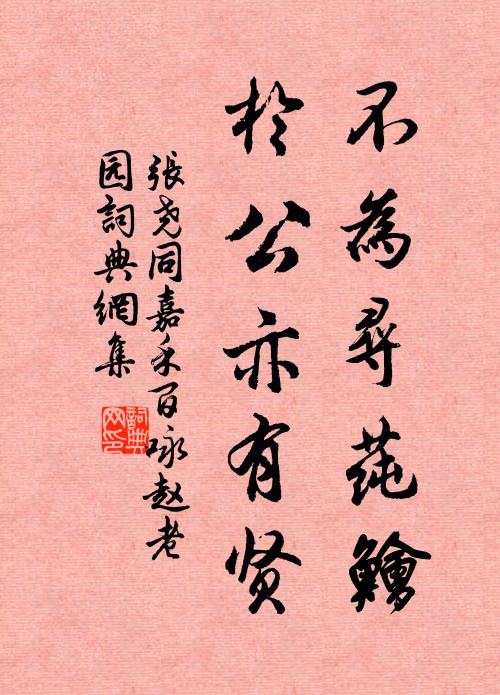 不為尋蒓鱠
於公亦有贤
張尧同嘉禾百咏赵老
园詞典網集
詞典
网印